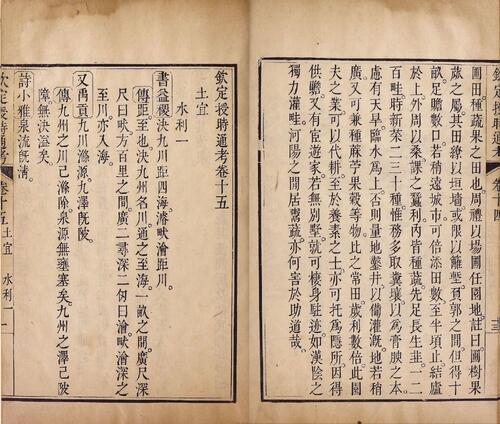 欽定授時通考 卷十四 十三
圃田種蔬果之田也周禮以場圃任園地註曰圃樹果
蓏之屬其田繚以垣墻或限以籬塹負郭之間但得十
畝足贍數口若稍遠城市可倍添田數至半頃止結廬
於上外周以桑課之蠶利內皆種蔬先足長生韭一二
百畦時新菜二三十種惟務多取糞壤以爲膏腴之本
慮有天旱臨水爲上否則量地鑿井以備灌漑地若稍
廣又可兼種麻苧果穀等物比之常田歲利數倍此園
夫之業可以代耕至於養素之士亦可托爲隱所因得
供贍又有宦遊家若無別墅就可棲身駐迹如漢陰之
獨力灌畦河陽之閒居鬻蔬亦何害於助道哉。
欽定授時通考卷十五
土宜
水利一
書益稷決九川距四海。濬畎澮距川。
傳距至也決九州名川。通之至海。一畝之閒。廣尺深
尺曰畎方百里之閒。廣二尋深二仞曰澮。畎澮深之
至川。亦入海。
又禹貢九川滌源。九澤既陂。
傳九州之川已滌除泉源無壅塞矣。九州之澤已陂
障。無決溢矣。
詩小雅泉流既清。
欽定授時通考 卷十五 土宜 水利一 一